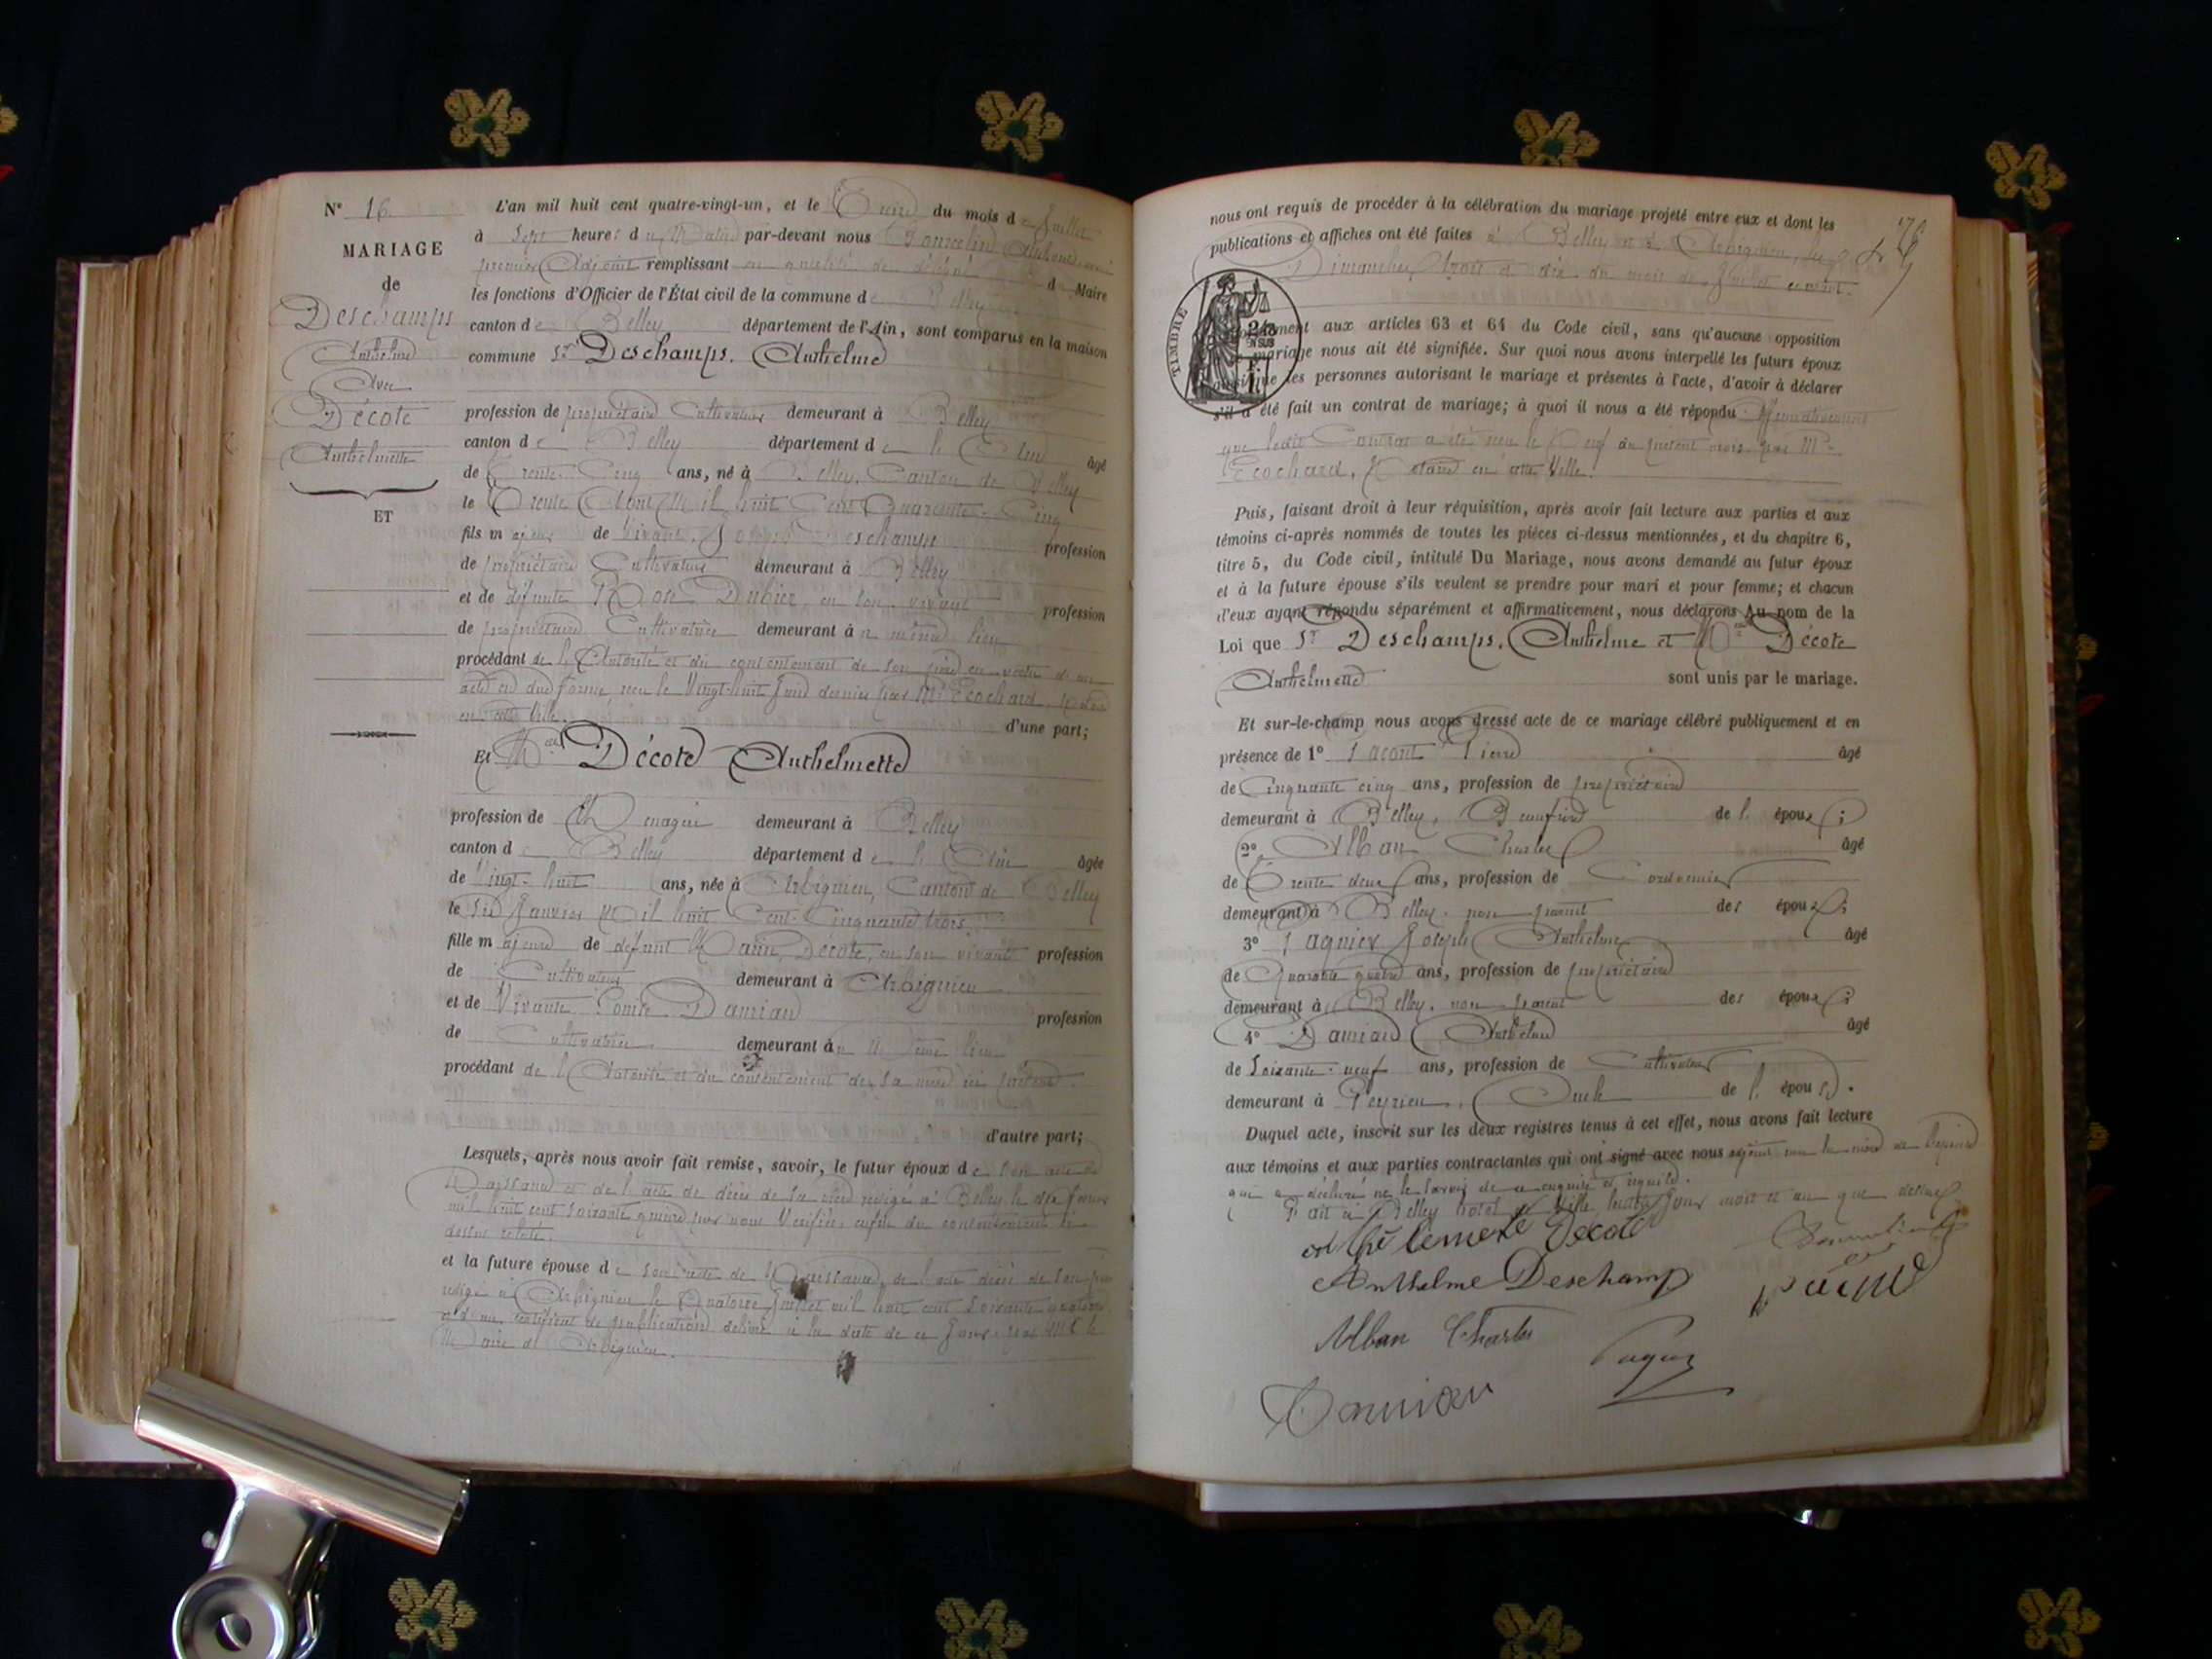 N° 16
MARIAGE
de
Deschamps
Anthelme
Avec
Décote
Anthelmette
ET
L'an mil huit cent quatre-vingt-un, et le du mois de Juillet
à Sept heures du Matin par-devant nous
premier Adjoint remplissant en qualité de délégué d Maire
les fonctions d'Officier de l'État civil de la commune de Belley
canton de Belley département de l'Ain, sont comparus en la maison
commune Sr Deschamps. Anthelme
profession de propriétaire Cultivateur demeurant à Belley
canton de Belley département de l'Ain âgé
de Trente Cinq ans, né à Belley, Canton de Belley
le Trente Août Mil huit Cent Quarante-Cinq
fils majeur de Vivant Joseph Deschamps profession
de propriétaire Cultivateur demeurant à Belley
et de défunte Rose Dubier, en son vivant profession
de propriétaire Cultivatrice demeurant au même lieu
procédant de l'Autorité et du consentement de son père en vertu d'un
acte en due forme reçu le Vingt-huit Juin dernier par Me Ecochard, Notaire
en cette Ville. d'une part;
Et Melle Décote Anthelmette
profession de Ménagère demeurant à Belley
canton de Belley département de l'Ain âgée
de Vingt-huit ans, née à Arbignieu, Canton de Belley
le Six Janvier Mil huit Cent-Cinquante trois
fille majeure de défunt Marin Décote, en son vivant profession
de Cultivateur demeurant à Arbignieu
et de Vivante Damian profession
de Cultivatrice demeurant au Même lieu
procédant de l'Autorité et du consentement de sa mère ici présente.
d'autre part;
Lesquels, après nous avoir fait remise, savoir, le futur époux de son acte de
Naissance et de l'acte de décès de sa mère rédigé à Belley le
mil huit cent soixante par nous Vérifiés, enfin du consentement ci
dessus relaté.
et la future épouse de son acte de Naissance, de l'acte décès de son père
rédigé à Arbignieu le Quatorze Juillet mil huit cent soixante
et d'un certificat de publication délivré à la date de ce jour par Mr le
Maire d'Arbignieu.
nous ont requis de procéder à la célébration du mariage projeté entre eux et dont les
publications et affiches ont été faites à Belley et à Arbignieu, les
Dimanches trois et dix du mois de Juillet courant.
TIMBRE
aux articles 63 et 64 du Code civil, sans qu'aucune opposition
mariage nous ait été signifiée. Sur quoi nous avons interpellé les futurs époux
ainsi que les personnes autorisant le mariage et présentes à l'acte, d'avoir à déclarer
s'il a été fait un contrat de mariage; à quoi il nous a été répondu Affirmativement
que ledit Contrat a été reçu le Neuf du présent mois par Me
Ecochard, Notaire en cette Ville.
Puis, faisant droit à leur réquisition, après avoir fait lecture aux parties et aux
témoins ci-après nommés de toutes les pièces ci-dessus mentionnées, et du chapitre 6,
titre 5, du Code civil, intitulé Du Mariage, nous avons demandé au futur époux
et à la future épouse s'ils veulent se prendre pour mari et pour femme; et chacun
d'eux ayant répondu séparément et affirmativement, nous déclarons Au nom de la
Loi que Sr Deschamps. Anthelme et Melle Décote
Anthelmette sont unis par le mariage.
Et sur-le-champ nous avons dressé acte de ce mariage célébré publiquement et en
présence de 1° Pierre âgé
de Cinquante cinq ans, profession de propriétaire
demeurant à Belley, Beaufrère de l'époux;
2° Alban Charles âgé
de Trente deux ans, profession de Cordonnier
demeurant à Belley. non parent des époux;
3° Joseph Anthelme âgé
de Quarante quatre ans, profession de propriétaire
demeurant à Belley. non parent des époux;
4° Damian Anthelme âgé
de Soixante-neuf ans, profession de Cultivateur
demeurant à Peyrieu, Oncle de l'épouse.
Duquel acte, inscrit sur les deux registres tenus à cet effet, nous avons fait lecture
aux témoins et aux parties contractantes qui ont signé avec nous
qui a déclaré ne le savoir de ce enquise et requise.
Fait à Belley hôtel de Ville les jour mois et an que dessus
Decote
Anthelme Deschamp
Alban Charles
Damian